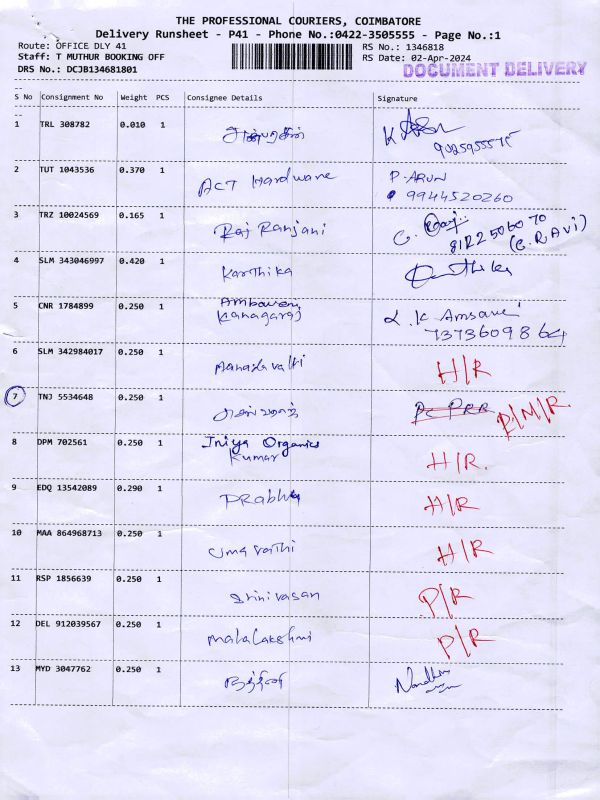 THE PROFESSIONAL COURIERS, COIMBATORE
Delivery Runsheet - P41 - Phone No.:0422-3505555 - Page No.:1
Route: OFFICE DLY 41 RS No.: 1346818
Staff: T MUTHUR BOOKING OFF RS Date: 02-Apr-2024
DRS No.: DCJB134681801 DOCUMENT DELIVERY
S No Consignment No Weight PCS Consignee Details Signature
1 TRL 308782 0.010 1 K
2 TUT 1043536 0.370 1 ACT Hardware P. ARUN
9944520260
3 TRZ 10024569 0.165 1 Raj Ranjani G.
(G. RAVi)
4 SLM 343046997 0.420 1 Karthika Karthika
5 CNR 1784899 0.250 1 Ambaveni
Kanagaraj L. K Amsaveni
7373609864
6 SLM 342984017 0.250 1 H/R
7 TNJ 5534648 0.250 1 P/M/R
8 DPM 702561 0.250 1 Iniya Organics
Kumar H/R.
9 EDQ 13542089 0.290 1 Prabhu H/R
10 MAA 864968713 0.250 1 Umavathi H/R
11 RSP 1856639 0.250 1 Srinivasan P/R
12 DEL 912039567 0.250 1 Mahalakshmi P/R
13 MYD 3047762 0.250 1 நந்தினி Nandhini